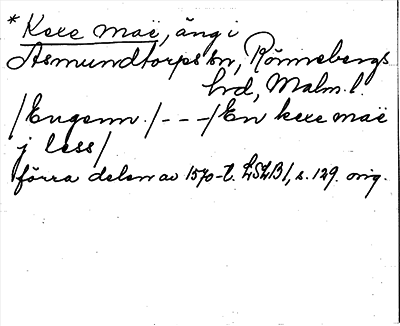 * Kexe maë, äng i
Asmundtorps sn, Rönnebergs
hrd, Malm. l.
/Engenn./ - - - /En kexe maë
j less/
förra delen av 1570-t. LSLB 1, s. 129. orig.